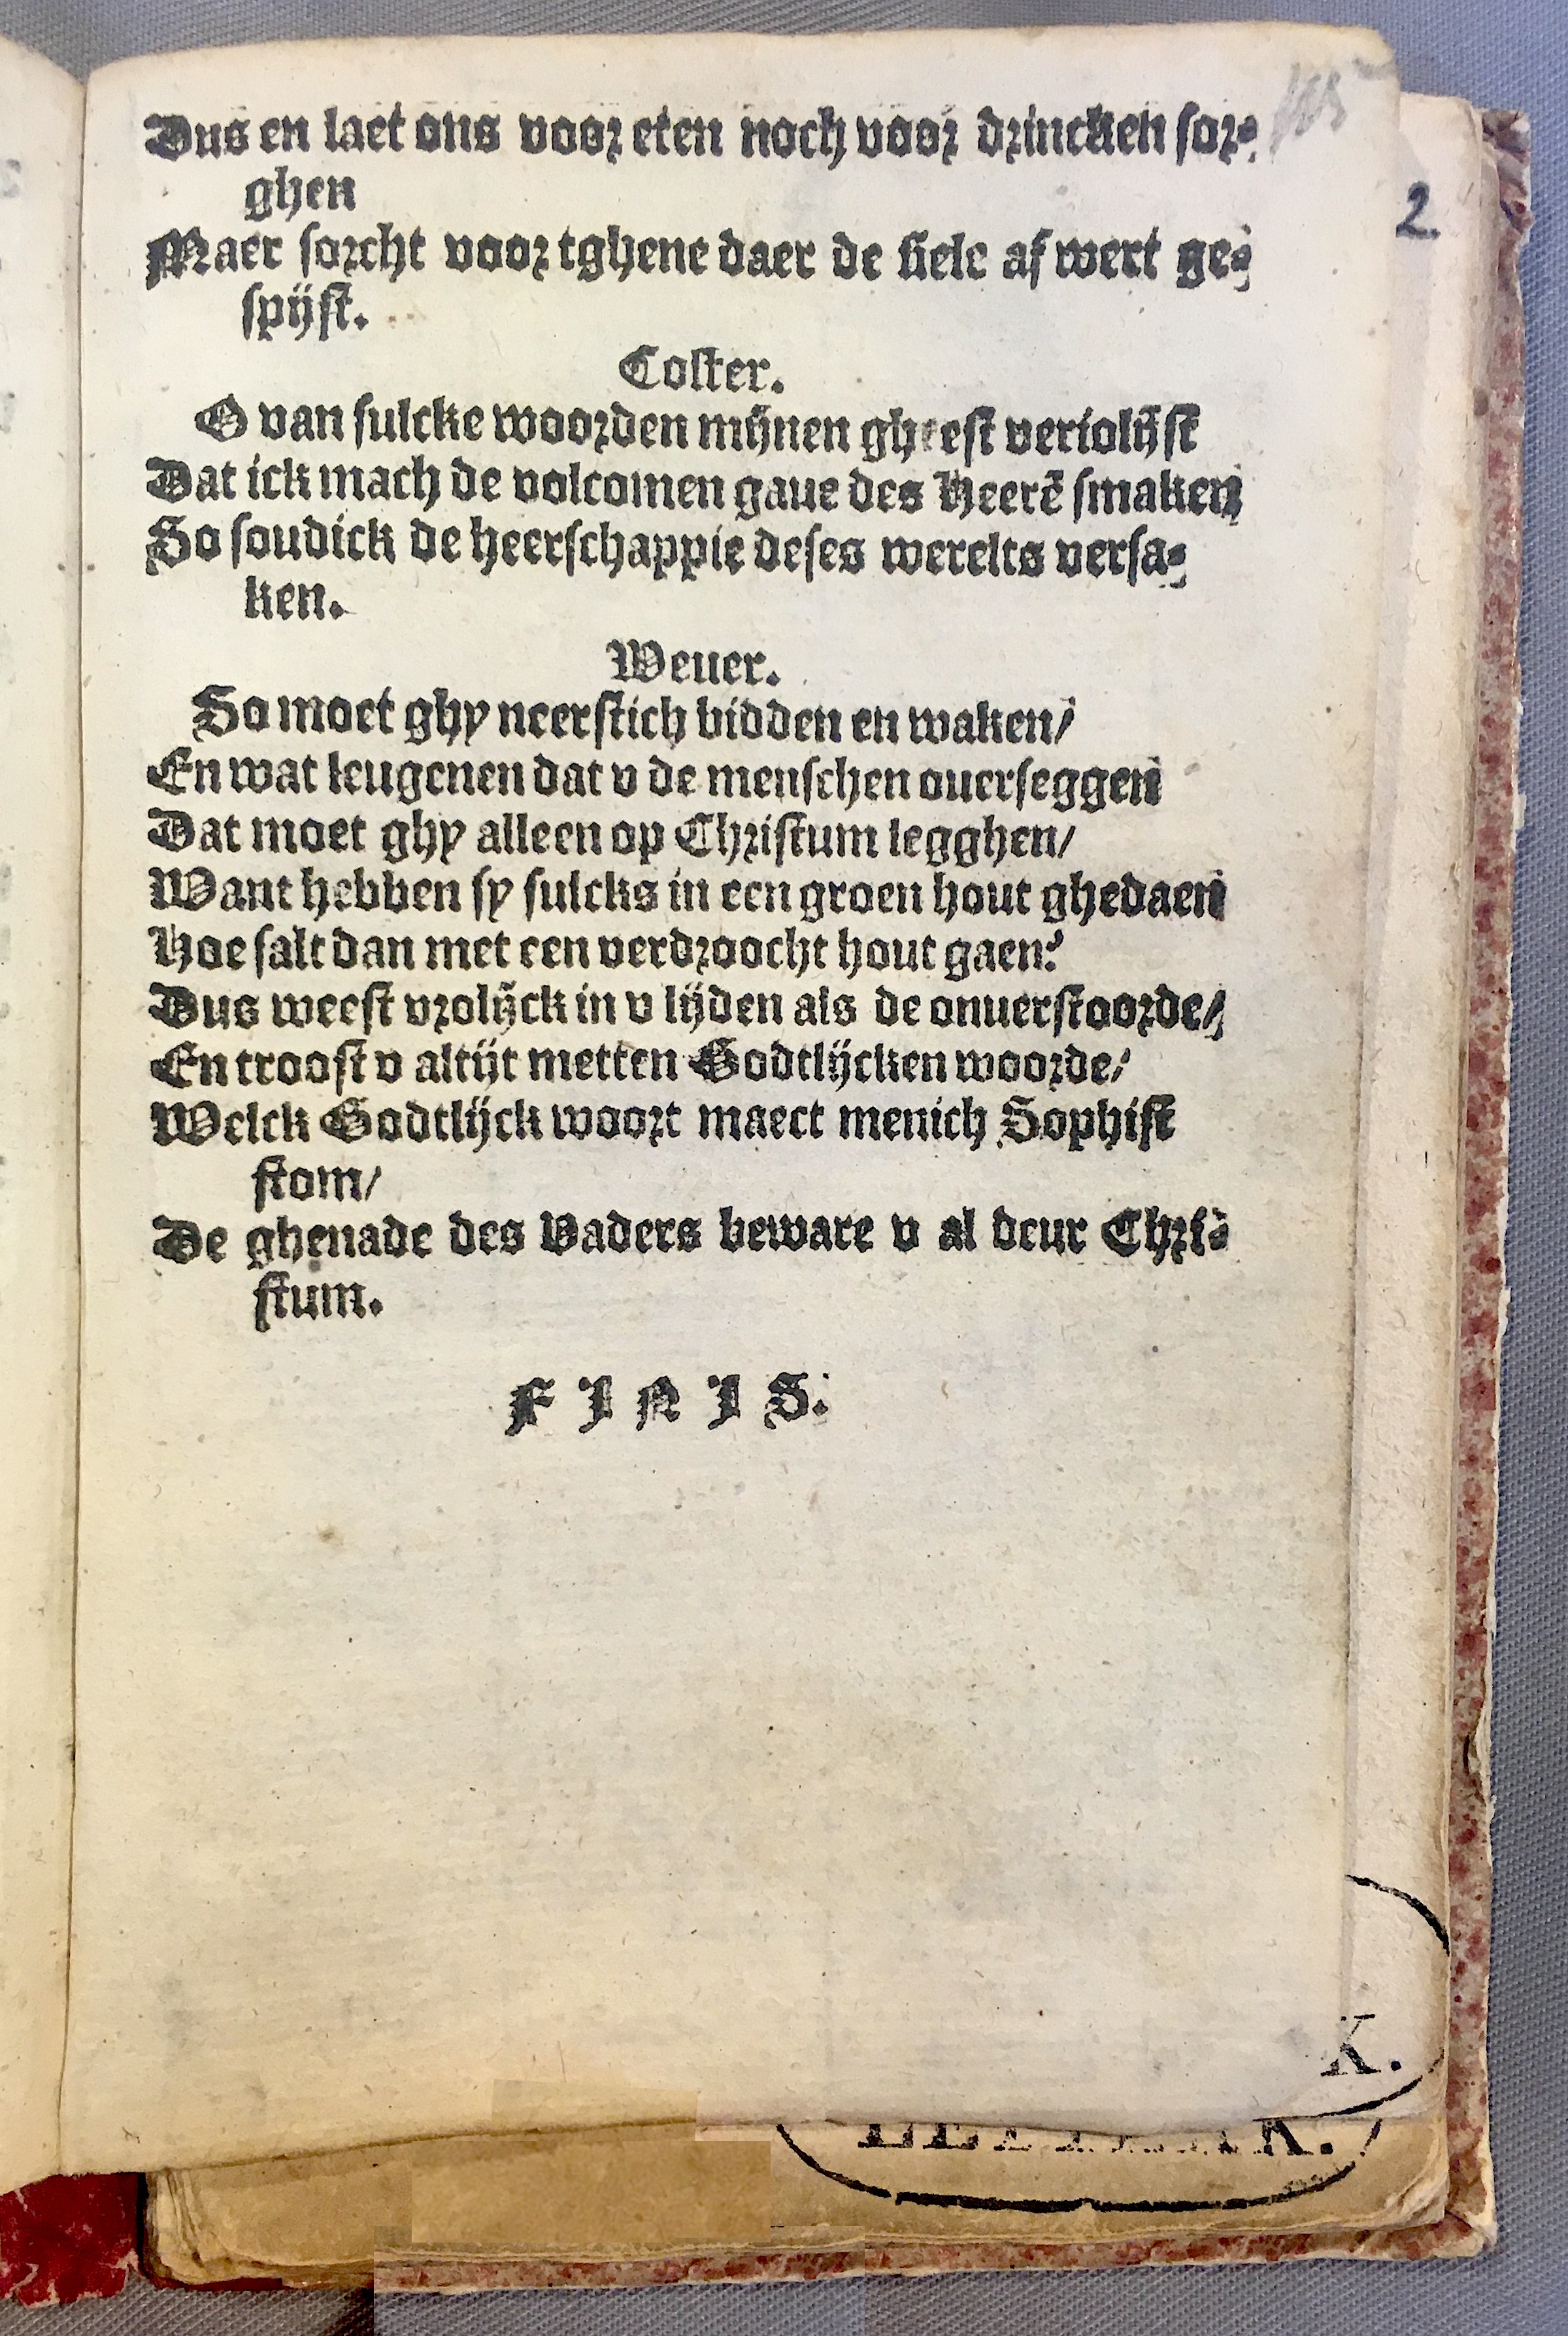 Dus en laet ons voor eten noch voor drincken sor-
ghen
Maer sorcht voor tghene daer de siele af wert ge-
spijst.
Coster.
O van sulcke woorden mijnen gheest veriolijst
Dat ick mach de volcomen gaue des Heerē smaken
So soudick de heerschappie deses werelts versa-
ken.
Weuer.
So moet ghy neerstich bidden en waken/
En wat leugenen dat v de menschen ouerseggen
Dat moet ghy alleen op Christum legghen/
Want hebben sy sulcks in een groen hout ghedaen
Hoe salt dan met een verdroocht hout gaen?
Dus weest vrolijck in v lijden als de onuerstoorde/
En troost v altijt metten Godtlijcken woorde/
Welck Godtlijck woort maect menich Sophist
stom/
De ghenade des Vaders beware v al deur Chri-
stum.
F I N I S.
2.
K.